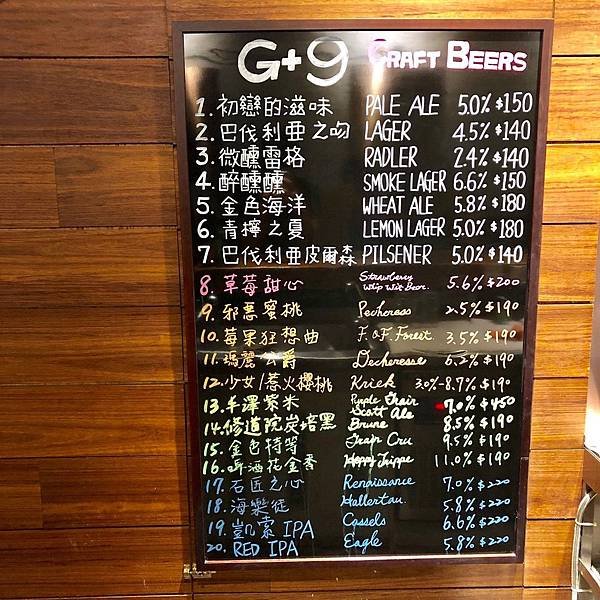 G+9 CRAFT BEERS
1. 初戀的滋味 PALE ALE 5.0% $150
2. 巴伐利亞之吻 LAGER 4.5% $140
3. 微醺雷格 RADLER 2.4% $140
4. 醉醺醺 SMOKE LAGER 6.6% $150
5. 金色海洋 WHEAT ALE 5.8% $180
6. 青檸之夏 LEMON LAGER 5.0% $180
7. 巴伐利亞皮爾森 PILSENER 5.0% $140
8. 草莓甜心 Strawberry Whip Wit Beer. 5.6% $200
9. 邪惡蜜桃 Pecheress 2.5% $190
10. 莓果狂想曲 F.O.F. Forest 3.5% $190
11. 瑪麗公爵 Decheresse 6.2% $190
12. 少女/惹火櫻桃 Kriek 3.0%-8.7% $190
13. 毛澤紫米 Purple Scott Ale 7.0% $450
14. 修道院炭培黑 Brune 8.5% $190
15. 金色特等 Gran Cru 9.5% $190
16. 啤酒花金香 Hoppy Trippe 11.0% $190
17. 石匠之心 Renaissance 7.0% $220
18. 海樂徒 Hallertau 5.8% $220
19. 凱索 IPA Cassels 6.6% $220
20. RED IPA Eagle 5.8% $220